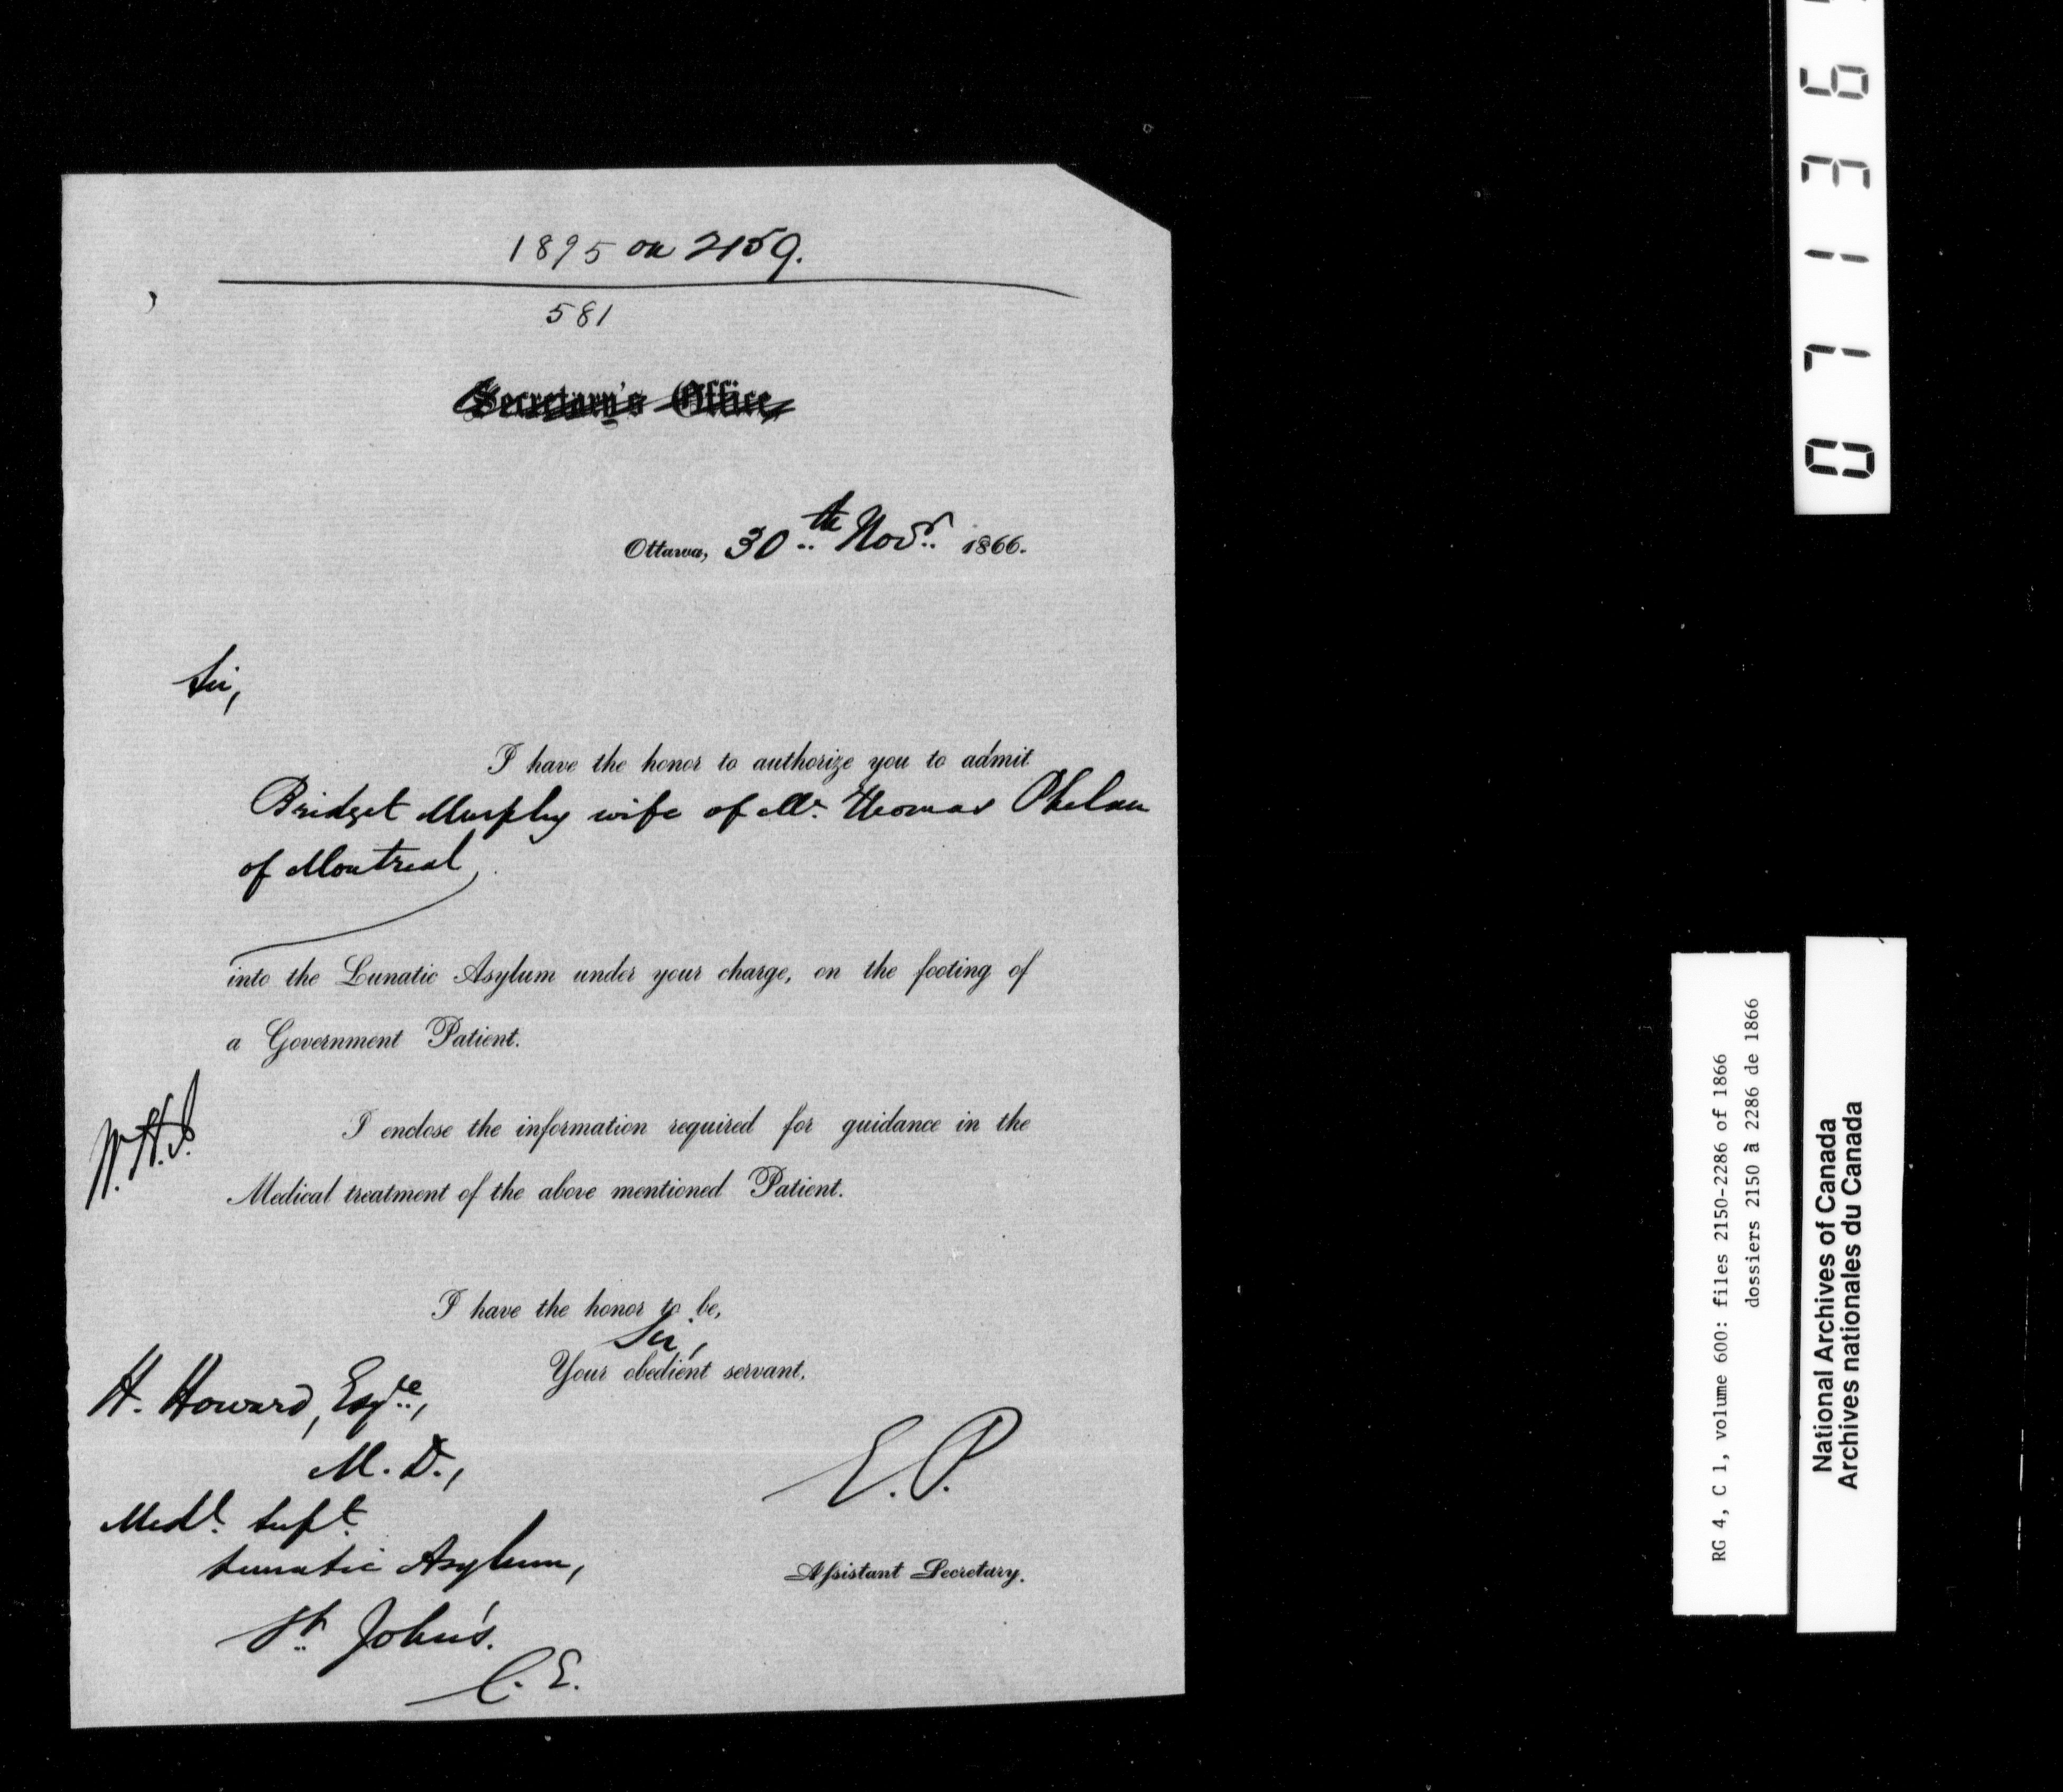 1895 on 2159.
581
Secretary's Office,
Ottawa, 30th Novr. 1866.
Sir,
I have the honor to authorize you to admit
Bridget Murphy wife of Mr. Thomas Phelan
of Montreal,
into the Lunatic Asylum under your charge, on the footing of
a Government Patient.
I enclose the information required for guidance in the
W.H.J.
Medical treatment of the above mentioned Patient.
I have the honor to be,
Sir,
Your obedient servant,
H. Howard, Esqre.,
M.D.,
E.P.
Medl. Supt.
Lunatic Asylum,
Assistant Secretary.
St. John's.
C.E.
07136
RG 4, C 1, volume 600: files 2150-2286 of 1866
dossiers 2150 à 2286 de 1866
National Archives of Canada
Archives nationales du Canada